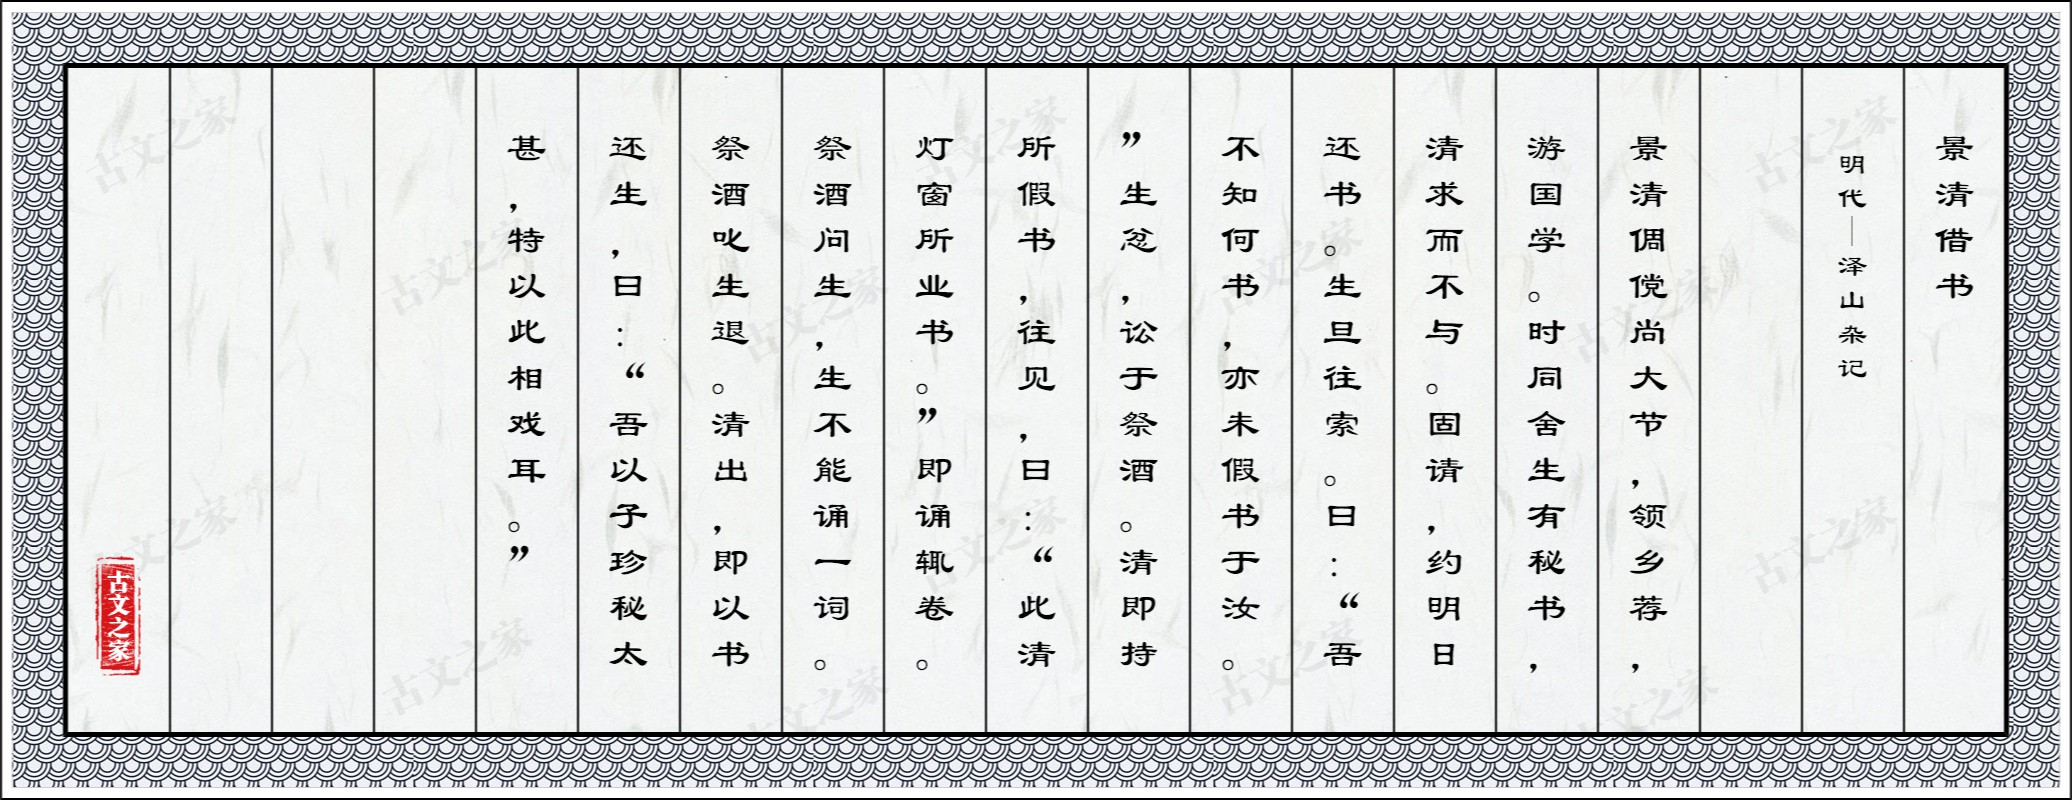 景清借书
明代—泽山杂记
景清倜傥尚大节，领乡荐，
游国学。时同舍生有秘书，
清求而不与。固请，约明日
还书。生旦往索。曰：“吾
不知何书，亦未假书于汝。
”生忿，讼于祭酒。清即持
所假书，往见，曰：“此清
灯窗所业书。”即诵辄卷。
祭酒问生，生不能诵一词。
祭酒叱生退。清出，即以书
还生，曰：“吾以子珍秘太
甚，特以此相戏耳。”
古文之家